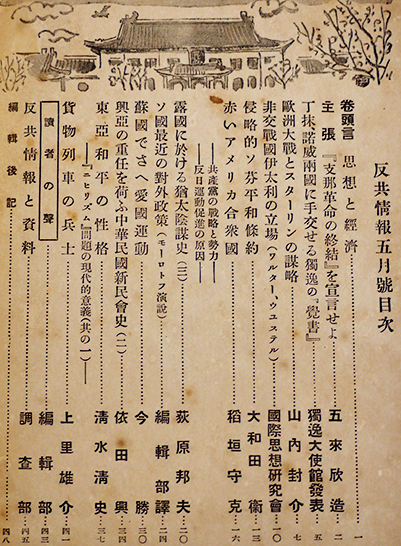 反共情報五月號目次
卷頭言 思想と經濟 一
主張 『支那革命の終結』を宣言せよ 五來欣造 二
丁抹諾威兩國に手交せる獨逸の『覺書』 獨逸大使館發表 五
歐洲大戰とスターリンの謀略 山内封介 七
非交戰國伊太利の立場(ワルター、ウユステル) 國際思想研究會 一〇
侵略的ソ芬平和條約 大和田衞 一三
赤いアメリカ合衆國 稻垣守克 一六
―共產黨の戰略と勢力―
―反日運動促進の原因―
露國に於ける猶太陰謀史(三) 荻原邦夫 二〇
ソ國最近の對外政策(モーロトフ演說) 編輯部譯 二四
蘇國でさへ愛國運動 今勝 三〇
興亞の重任を荷ふ中華民國新民會史(二) 依田興 三四
東亞和平の性格 淸水淸史 三七
―『ニヒリズム』問題の現代的意義(其の一)―
貨物列車の兵士 上里雄介 四一
讀者の聲 編輯部 四三
反共情報と資料 調查部 四五
編輯後記 四八